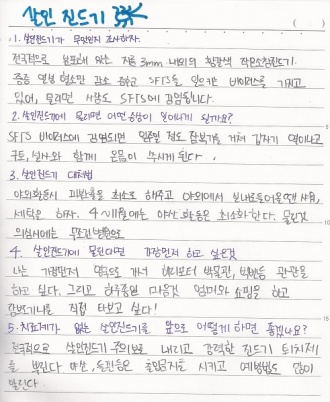 살인 진드기
( )
1. 살인진드기가 무엇인지 조사하자.
전국적으로 분포해 있는 지름 3mm 내외의 황갈색 작은소참진드기.
중증 열성 혈소판 감소 증후군 SFTS를 일으키는 바이러스를 가지고
있어, 물리면 사람도 SFTS에 감염됩니다.
2. 살인진드기에 물리면 어떤 증상이 일어나게 될까요?
SFTS 바이러스에 감염되면 일주일 정도 잠복기를 거쳐 갑자기 열이나고
구토, 설사와 함께 온몸이 쑤시게 된다.
3. 살인진드기 대처법
야외활동시 피부노출을 최소로 해주고 야외에서 실내로들어올땐 샤워,
세탁을 하자. 4~11월에는 야산활동은 최소화한다. 물린것
의심시에는 무조건병원으로
4. 살인진드기에 물린다면 가장먼저 하고 싶은것
나는 가장먼저 영국으로 가서 박물관, 관광을
하고 싶다. 그리고 하루종일 마음껏 엄마와 쇼핑을 하고
직접 타보고 싶다!
5. 치료제가 없는 살인진드기를 앞으로 어떻게 하면 좋겠나요?
전국적으로 살인진드기 주의보를 내리고 강력한 진드기 퇴치제
를 뿌린다 야산, 등은 출입금지를 시키고 예방법도 많이
알린다